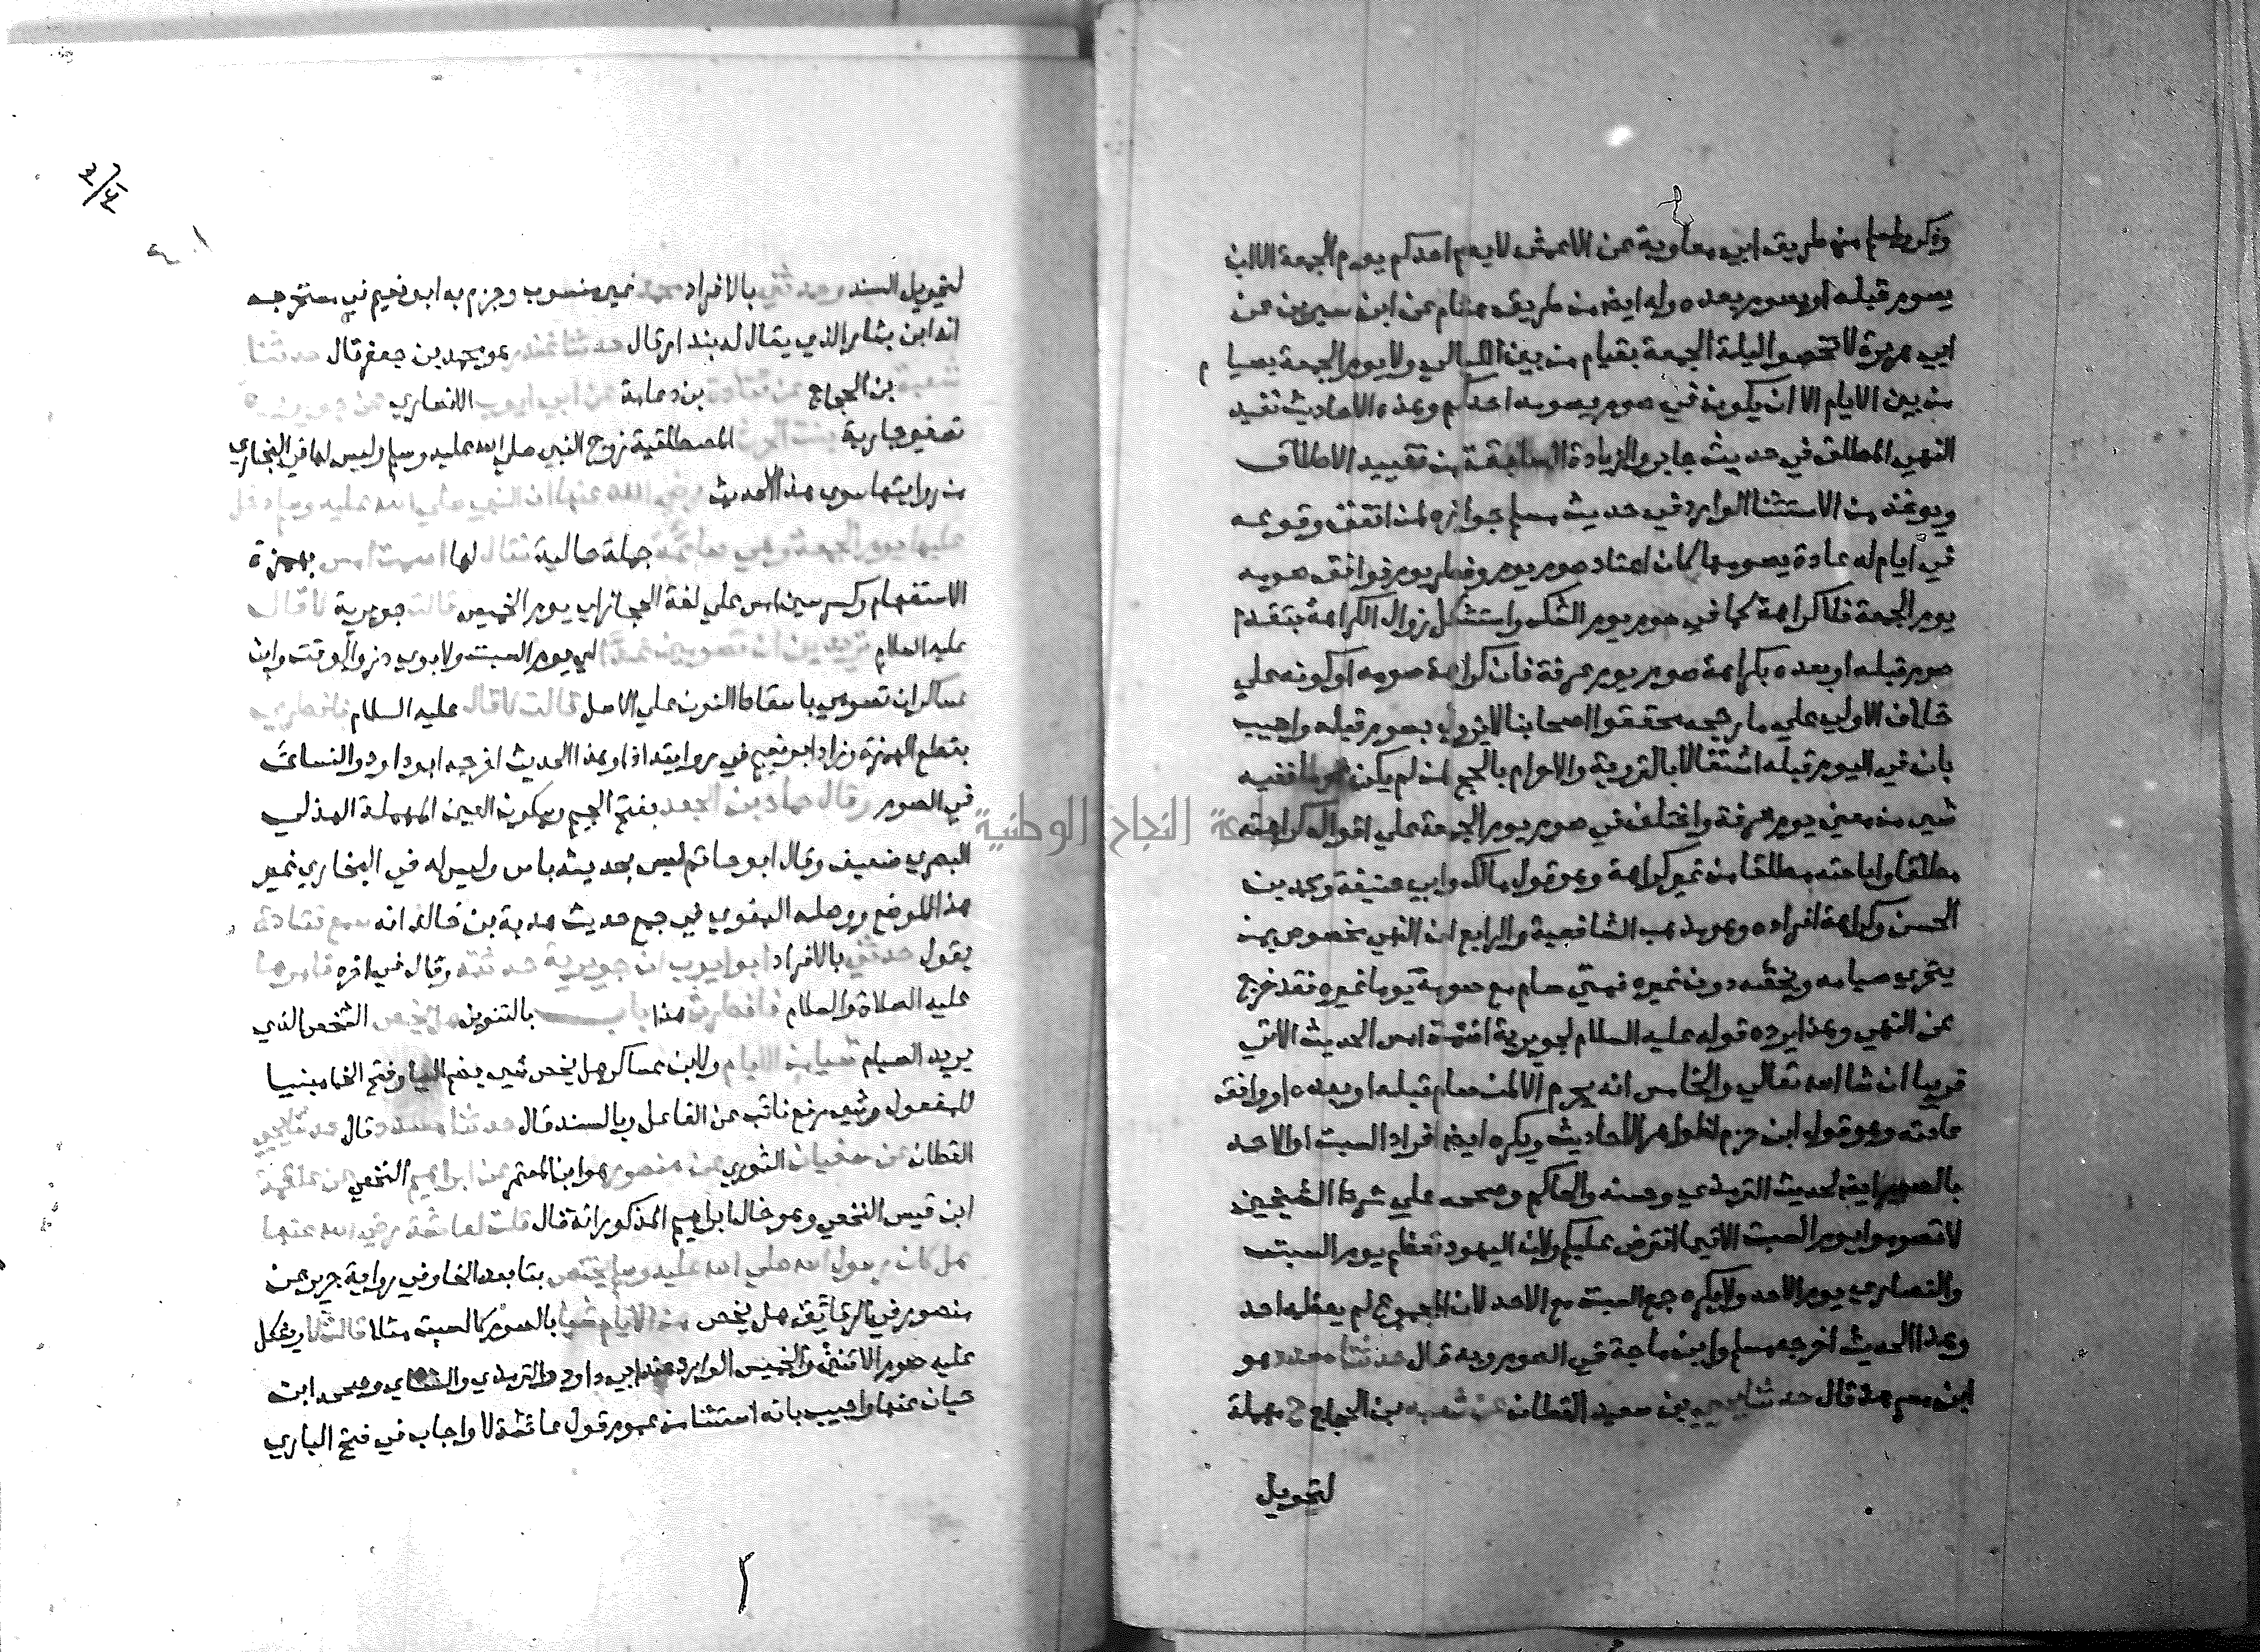 ولمسلم من طريق ابي معاوية عن الاعمش لا يصم احدكم يوم الجمعة الا ان
يصوم قبله او يصوم بعده وله ايضا من طريق هشام عن ابن سيرين عن
ابي هريرة لا تخصوا ليلة الجمعة بقيام من بين الليالي ولا يوم الجمعة بصيام
من بين الايام الا ان يكون في صوم يصومه احدكم وهذه الاحاديث تقيد
النهي المطلق في حديث جابر والزيادة السابقة من تقييد الاطلاق
ويوخذ من الاستثنا الوارد في حديث مسلم جوازه لمن اتفق وقوعه
في ايام له عادة يصومها كان اعتاد صوم يوم وفطر يوم فوافق صومه
يوم الجمعة فلا كراهة كما في صوم يوم الشك واستشكل زوال الكراهة بتقدم
صوم قبله او بعده بكراهة صوم يوم عرفة فان كراهة صومه او كونه علي
خلاف الاولي علي ما رجحه محققوا اصحابنا لا يزول بصوم قبله واجيب
بان في اليوم قبله اشتغالا بالتروية والاحرام بالحج لمن لم يكن ففيه
شي من معني يوم عرفة واختلف في صوم يوم الجمعة علي اقوال كراهته
مطلقا واباحته مطلقا من غير كراهة وهو قول مالك وابي حنيفة ومحمد بن
الحسن وكراهة افراده وهو مذهب الشافعية والرابع ان النهي مخصوص بمن
يتحري صيامه ويخصه دون غيره فمتي صام مع صومه يوما غيره فقد خرج
عن النهي وهذا يرده قوله عليه السلام لجويرية اصمت امس الحديث الاتي
قريبا ان شا الله تعالي والخامس انه يحرم الا لمن صام قبله او بعده او وافق
عادته وهو قول ابن حزم لظواهر الاحاديث ويكره ايضا افراد السبت او الاحد
بالصوم ايضا لحديث الترمذي وحسنه والحاكم وصححه علي شرط الشيخين
لا تصوموا يوم السبت الا فيما افترض عليكم ولان اليهود تعظم يوم السبت
والنصاري يوم الاحد ولا يكره جمع السبت مع الاحد لان المجموع لم يعظمه احد
وهذا الحديث اخرجه مسلم وابن ماجة في الصوم وبه قال حدثنا مسدد هو
ابن مسرهد قال حدثنا يحيي بن سعيد القطان عن شعبه بن الحجاج ح مهملة
لتحويل
لتحويل السند وحدثني بالافراد محمد غير منسوب وجزم به ابو نعيم في مستخرجه
انه ابن بشار الذي يقال له بندار قال حدثنا غندر هو محمد بن جعفر قال حدثنا
شعبة بن الحجاج عن قتادة بن دعامة عن ابي ايوب الانصاري عن جويرية
تصغير جارية بنت الحارث المصطلقية زوج النبي صلي الله عليه وسلم وليس لها في البخاري
من روايتها سوي هذا الحديث رضي الله عنها ان النبي صلي الله عليه وسلم دخل
عليها يوم الجمعة وهي صائمة جملة حالية فقال لها اصمت امس بهمزة
الاستفهام وكسر سين امس علي لغة الحجاز اي يوم الخميس قالت جويرية لا قال
عليه السلام تريدين ان تصومين غدا اي يوم السبت ولابوي ذر والوقت وابن
عساكر ان تصومي باسقاط النون علي الاصل قالت لا قال عليه السلام فافطري
بقطع الهمزة وزاد ابو نعيم في روايته اذا وهذا الحديث اخرجه ابو داود والنسائي
في الصوم وقال حماد بن الجعد بفتح الجيم وسكون العين المهملة الهذلي
البصري ضعيف وقال ابو حاتم ليس بحديثه باس وليس له في البخاري غير
هذا الموضع ووصله البغوي في جمع حديث هدبة بن خالد انه سمع قتادة
يقول حدثني بالافراد ابو ايوب ان جويرية حدثته وقال في اخره فامرها
عليه الصلاة والسلام فافطرت هذا باب بالتنوين هل يخص الشخص الذي
يريد الصيام شيا من الايام ولابن عساكر هل يخص شي بضم اليا وفتح الخا مبنيا
للمفعول وشي رفع نائب عن الفاعل وبالسند قال حدثنا مسدد قال حدثنا يحيي
القطان عن سفيان الثوري عن منصور هو ابن المعتمر عن ابراهيم النخعي عن علقمة
ابن قيس النخعي وهو خال ابراهيم المذكور انه قال قلت لعائشة رضي الله عنها
هل كان رسول الله صلي الله عليه وسلم يختص بتا بعد الخا وفي رواية جرير عن
منصور في الرقايق هل يخص من الايام شيا بالصوم كالسبت مثلا قالت لا ويشكل
عليه صوم الاثنين والخميس الوارد عند ابي داود والترمذي والنسائي وصححه ابن
حبان عنها واجيب بانه استثنا من عموم قول عائشة لا واجاب في فتح الباري
جامعة النجاح الوطنية